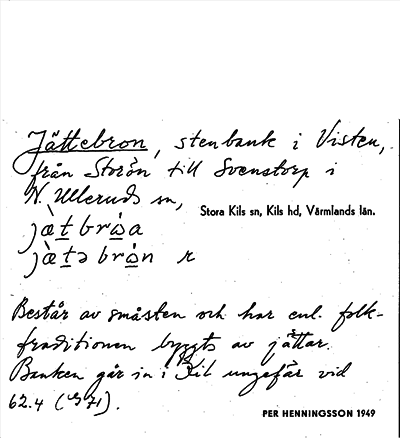 Jättebron, stenbank i Visten,
från Storön till Svenstorp i
N. Ulleruds sn,
Stora Kils sn, Kils hd, Värmlands län.
Består av småsten och har enl. folk-
traditionen byggts av jättar.
Banken går in i Kil ungefär vid
62.4
PER HENNINGSSON 1949